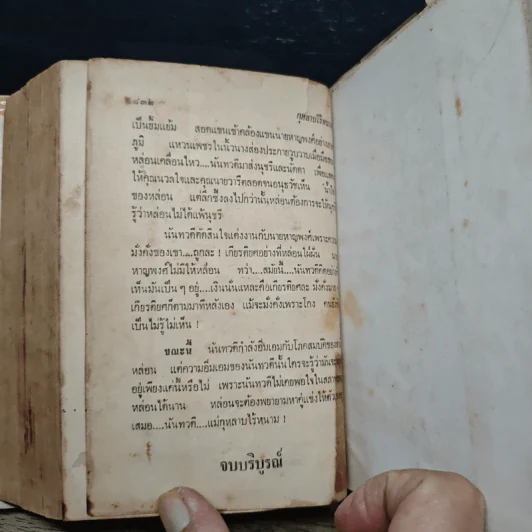 กุหลาบไร้หนาม
เป็นยิ้มแย้ม สอดแขนเข้าคล้องแขนนายหาญพงศ์อย่าง
ภูมิ แหวนเพชรในนิ้วนางส่องประกายวูบวาบเมื่อมือ
หล่อนเคลื่อนไหว....นันทวดีมาส่งนุชรีและนัดดา เพื่อ
ให้คุณนวลใจและคุณนายวารีตลอดจนอนุชวัชเห็น
ของหล่อน แต่ลึกซึ้งลงไปกว่านั้นหล่อนต้องการจะให้
รู้ว่าหล่อนไม่ได้แพ้นุชรี
นันทวดีตัดสินใจแต่งงานกับนายหาญพงศ์เพราะความ
มั่งคั่งของเขา....ถูกละ ! เกียรติยศอย่างที่หล่อนใฝ่ฝัน
หาญพงศ์ไม่มีให้หล่อน ทว่า....สมัยนี้....นันทวดีคิด
เห็นมันเป็น ๆ อยู่....เงินนั่นแหละคือเกียรติละ มั่งคั่ง
เกียรติยศก็ตามมาทีหลังเอง แม้จะมั่งคั่งเพราะโกง
เป็นไม่รู้ไม่เห็น !
ขณะนี้ นันทวดีกำลังอิ่มเอมกับโภคสมบัติของ
หล่อน แต่ความอิ่มเอมของนันทวดีนั้นใครจะรู้ว่ามันจะ
อยู่เพียงแค่นี้หรือไม่ เพราะนันทวดีไม่เคยพอใจใน
หล่อนได้นาน หล่อนจะต้องพยายามหาคู่แข่งให้ตัว
เสมอ....นันทวดี....แม่กุหลาบไร้หนาม !
จบบริบูรณ์